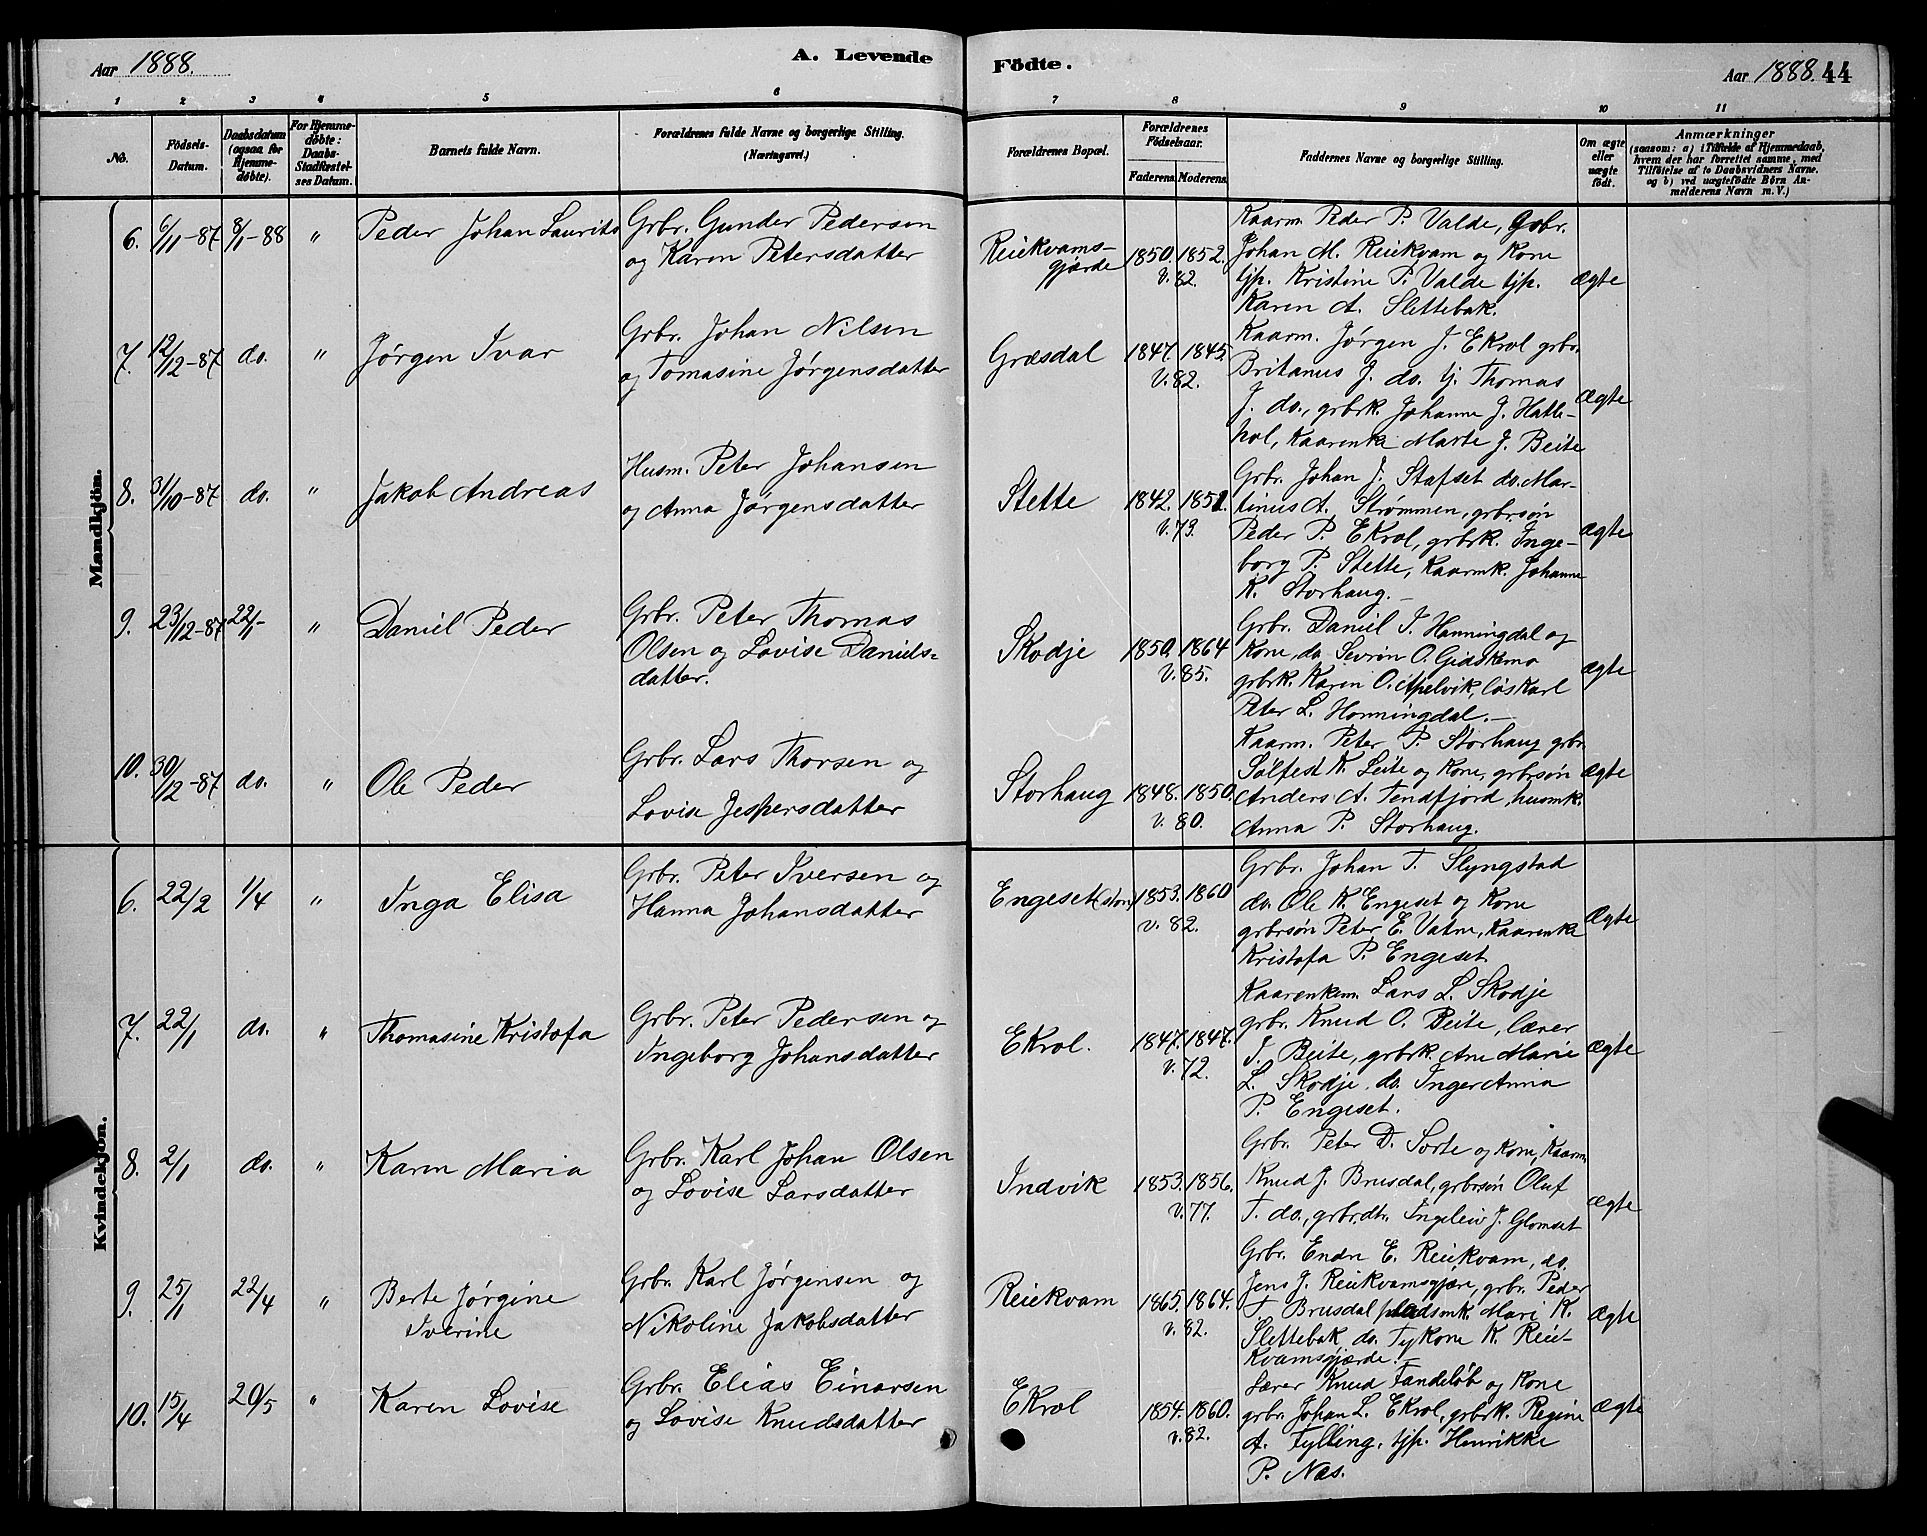 Aar 1888. A. Levende Födte. Aar 1888. 44
1 2 3 4 5 6 7 8 9 10 11
No.
Födsels-Datum.
Daabsdatum (ogsaa for Hjemmedøbte).
For Hjemmedøbte: Daabs-Stadfæstelses Datum.
Barnets fulde Navn.
Forældrenes fulde Navne og borgerlige Stilling. (Næringsvei.)
Forældrenes Bopæl.
Forældrenes Fødselsaar.
Faderens. Moderens.
Faddernes Navne og borgerlige Stilling.
Om ægte eller uægte født.
Anmærkninger
(saasom: a) i Tilfælde af Hjemmedaab, hvem der har forrettet samme, med Tilføielse af to Daabsvidners Navne. og b) ved uægtefödte Börn Anmelderens Navn m. V.)
Mandkjön.
6. 6/11-87 8/1-88 " Peder Johan Laurits
Grbr. Gunder Pedersen
og Karen Petersdatter
Reiekvams-
gjærde
1850. 1852.
v. 82.
Kaarm. Peder P. Valde, Grbr.
Johan M. Reiekvam og Kone
tjp. Kristine P. Valde tjp.
Karen A. Slettebak.
ægte
7. 12/12-87 do. " Jørgen Ivar
Grbr. Johan Nilsen
og Tomasine Jørgensdatter
Græsdal
1847. 1845.
v. 82.
Kaarm. Jørgen J. Ekrol grbr.
Britanus J. do. tj. Thomas
J. do., grbrk. Johanne J. Hatle-
hol, Kaarenke Marte J. Beite
Ægte
8. 31/10-87 do. " Jakob Andreas
Husm. Peter Johansen
og Anna Jørgensdatter
Stette
1842. 1851.
v. 73.
Grbr. Johan J. Stafset do. Mar-
tinus A. Strømmen, grbrsøn
Peder P. Ekrol, grbrk. Inge-
borg P. Stette, Kaarmk. Johanne
K. Storhaug.-
ægte
9. 23/12-87 22/1- " Daniel Peder
Grbr. Peter Thomas
Olsen og Lovise Daniels-
datter.
Skodje
1850. 1864
v. 85.
Grbr. Daniel I. Honningdal og
Kone, do. Sevrin O. Gidskemo
grbrk. Karen O. Apelvik, løskarl
Peter L. Honningdal.-
ægte
10. 30/12-87 do. " Ole Peder
Grbr. Lars Thorsen og
Lovise Jespersdatter
Storhaug
1848. 1850.
v. 80.
Kaarm. Peter P. Storhaug grbr.
Sølfest K. Leite og Kone, grbrsøn
Anders A. Tenfjord, husmk.
Anna P. Storhaug.
Ægte
Kvindekjön.
6. 22/2 1/4 " Inga Elisa
Grbr. Peter Iversen og
Hanna Johansdatter
Engeset (store)
1853. 1860
v. 82.
Grbr. Johan T. Slyngstad
do. Ole K. Engeset og Kone
grbrsøn Peter E. Vatne, Kaarenke
Kristofa P. Engeset
Ægte
7. 22/1 do. " Thomasine Kristofa
Grbr. Peter Pedersen og
Ingeborg Johansdatter
Ekrol.
1847. 1847.
v. 72.
Kaarenkem. Lars L. Skodje
grbr. Knud O. Beite, lærer
J. Beite, grbrk. Ane Marie
L. Skodje, do. Inger Anna
P. Engeset.
ægte
8. 2/1 do. " Karen Maria
Grbr. Karl Johan Olsen
og Lovise Larsdatter
Indvik
1853. 1856.
v. 77.
Grbr. Peter D. Sorte og Kone, Kaarm.
Knud J. Brusdal, grbrsøn Oluf
T. do., grbrdtr. Ingeleiv J. Glomset
ægte
9. 25/1 22/4 " Berte Jørgine
Iverine
Grbr. Karl Jørgensen og
Nikoline Jakobsdatter
Reiekvam
1865. 1864.
v. 82.
Grbr. Endre E. Reiekvam, do.
Jens J. Reiekvamsgjære, grbr. Peder
T. Brusdal pladsmk. Mari K.
Slettebak, do. K. Reie-
kvamsgjærde.
Ægte
10. 15/4 20/5 " Karen Lovise
Grbr. Elias Einarsen
og Lovise Knudsdatter
Ekrol
1854. 1860.
v. 82.
Lærer Knud Fandeløb og Kone
grbr. Johan L. Ekrol, grbrk. Regine
A. Fylling, tjp. Henrikke
P. Næs.
Ægte